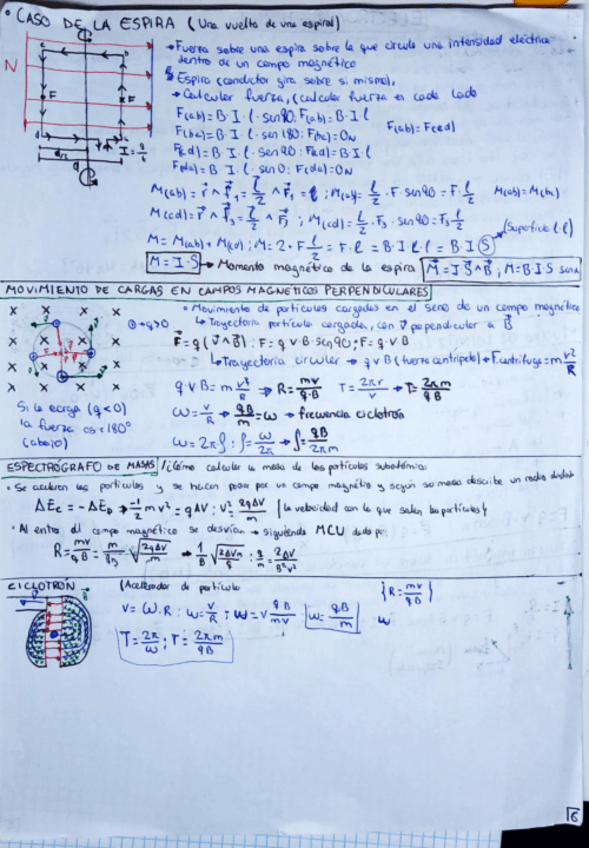 • CASO DE LA ESPIRA (Una vuelta de una espiral)
→ Fuerza sobre una espira sobre la que circula una intensidad eléctrica
dentro de un campo magnético
Espira (conductor gira sobre si mismo),
→ Calcular fuerza, (calcular fuerza en cada lado
N
F F
I = q/t
F(ab) = B·I·l·sen90, F(ab) = B·I·l
F(bc) = B·I·l·sen180; F(bc) = 0N
F(ab) = F(cd)
F(cd) = B·I·l·sen90; F(cd) = B·I·l
F(da) = B·I·l·sen0; F(da) = 0N
M(ab) = r ∧ F₁ = l/2 ∧ F₁ = ; M(ab) = l/2 · F·sen90 = F·l/2
M(cd) = r ∧ F₃ = l/2 ∧ F₃ ; M(cd) = l/2 · F₃·sen90 = F₃ l/2
(Superficie l·l)
M = M(ab) + M(cd); M = 2·F l/2 = F·l = B·I·l·l = B·I(S)
M = I·S → Momento magnético de la espira M = I S ∧ B ; M = B·I·S senα
MOVIMIENTO DE CARGAS EN CAMPOS MAGNETICOS PERPENDICULARES
• Movimiento de partículas cargadas en el seno de un campo magnético
↳ Trayectoria partícula cargada, con v perpendicular a B
⊕ → q>0
F = q(v ∧ B); F = q·v·B·sen90; F = q·v·B
↳ Trayectoria circular → q v B (fuerza centrípeta) → F.centrífuga = m v²/R
q·v·B = m v²/R → R = mv/q·B T = 2πr/v → T = 2πm/qB
Si la carga (q<0)
la fuerza es = 180°
(abajo)
ω = v/R → qB/m = ω → frecuencia ciclotrón
ω = 2πf; f = ω/2π → f = qB/2πm
ESPECTRÓGRAFO DE MASAS /¿Cómo calcular la masa de las partículas subatómicas
• Se aceleran las partículas y se hacen pasar por un campo magnético y según su masa describe un radio distinto
ΔEc = -ΔEp → 1/2 m v² = qΔV; v² = 2qΔV/m (la velocidad con la que salen las partículas)
• Al entrar al campo magnético se desvían → siguiendo MCU dado por:
R = mv/qB = m/qB √2qΔV/m → 1/B √2ΔVm/q ; q/m = 2ΔV/B²r²
CICLOTRÓN
(Acelerador de partícula
{R = mv/qB}
v = ω·R; ω = v/R; ω = v qB/mv ; ω = qB/m
ω
T = 2π/ω; T = 2πm/qB
6